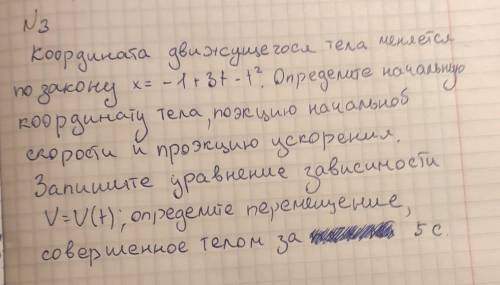 N3
Координата движущегося тела меняется
по закону x = -1 + 3t - t². Определите начальную
координату тела, поэкцию начальной
скорости и проэкцию ускорения.
Запишите уравнение зависимости
V=V(t); определите перемещение,
совершенное телом за 5 с.